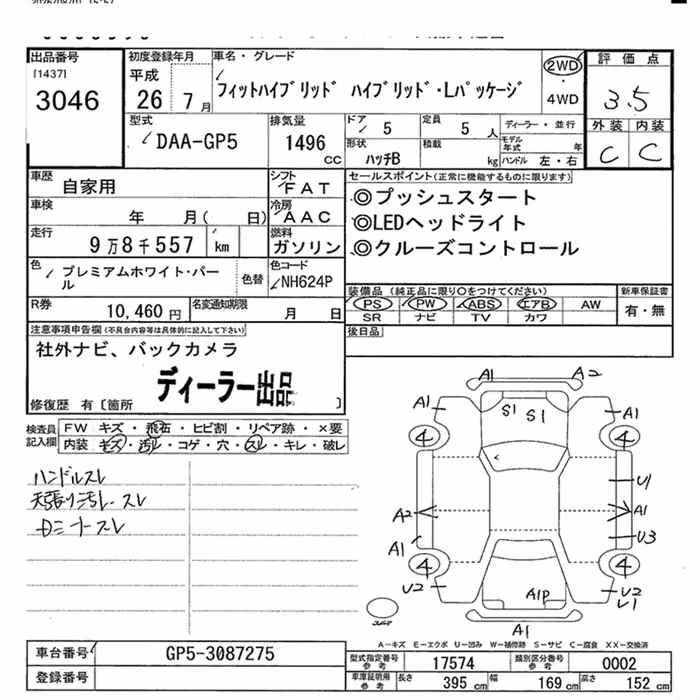 出品番号
[1437]
3046
初度登録年月
平成
26 7 月
車名・グレード
フィットハイブリッド ハイブリッド・Lパッケージ
2WD
4WD
評価点
3.5
外装 内装
C C
型式
DAA-GP5
排気量
1496
CC
ドア 5
定員 5 人
形状
ハッチB
積載 kg
ディーラー・並行
モデル年式 年
ハンドル 左・右
車歴
自家用
シフト
FAT
車検
年 月( 日)
冷房
AAC
走行
9万8千557 km
燃料
ガソリン
色
プレミアムホワイト・パール
色替
色コード
NH624P
R券
10,460円
名変通知期限
月 日
セールスポイント(正常に機能するものに限ります)
◎プッシュスタート
◎LEDヘッドライト
◎クルーズコントロール
装備品(純正品に限り○をつけてください)
PS PW ABS エアB AW
SR ナビ TV カワ
新車保証書
有・無
後日品
注意事項申告欄(不具合内容等は具体的に記入して下さい)
社外ナビ、バックカメラ
ディーラー出品
修復歴 有〔箇所 〕
検査員記入欄
FW キズ・飛石・ヒビ割・リペア跡・×要
内装 キズ・汚れ・コゲ・穴・スレ・キレ・破レ
ハンドルスレ
天張り汚レ、スレ
A1 A2
A1 S1 S1 A1
4 4
U1
A2 A1
A1 U3
4 4
U2 A1P U2
U1
A1
A-キズ E-エクボ U-凹み W-補修跡 S-サビ C-腐食 XX-交換済
車台番号
GP5-3087275
登録番号
型式指定番号
参考
17574
類別区分番号
参考
0002
車庫証明用
参考
長さ 395 cm
幅 169 cm
高さ 152 cm